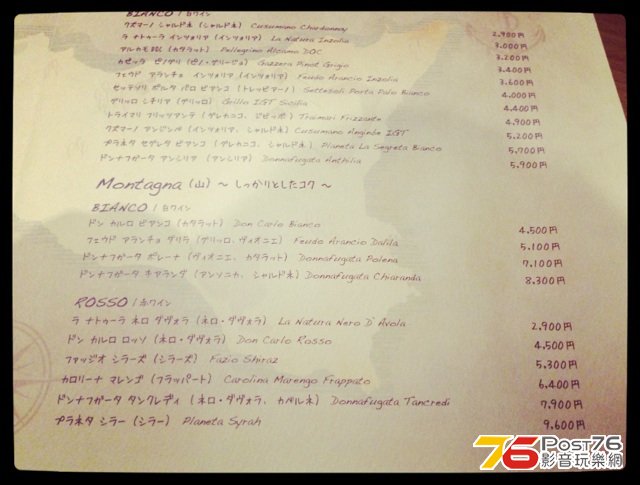 BIANCO / 白ワイン
クズマーノ シャルドネ (シャルドネ) Cusumano Chardonnay 2.900円
ラ ナトゥーラ インツォリア (インツォリア) La Natura Inzolia 3.000円
アルカモ DOC (カタラット) Pellegrino Alcamo DOC 3.200円
カゼッラ ピノグリ (ピノ・グリージョ) Gazzera Pinot Grigio 3.400円
フェウド アランチョ インツォリア (インツォリア) Feudo Arancio Inzolia 3.600円
セッテソリ ポルタ パロ ビアンコ (トレッビアーノ) Settesoli Porta Palo Bianco 4.000円
グリッロ シチリア (グリッロ) Grillo IGT Sicilia 4.400円
トライマリ フリッツァンテ (グレカニコ、ジビッボ) Traimari Frizzante 4.900円
クズマーノ アンジンル (インツォリア、シャルドネ) Cusumano Angimbé IGT 5.200円
プラネタ セグレタ ビアンコ (グレカニコ、シャルドネ) Planeta La Segreta Bianco 5.700円
ドンナフガータ アンシリア (アンシリア) Donnafugata Anthilia 5.900円
Montagna (山) ～ しっかりとしたコク ～
BIANCO / 白ワイン
ドン カルロ ビアンコ (カタラット) Don Carlo Bianco 4.500円
フェウド アランチョ ダリラ (グリッロ、ヴィオニエ) Feudo Arancio Dalila 5.100円
ドンナフガータ ポレーナ (ヴィオニエ、カタラット) Donnafugata Polena 7.100円
ドンナフガータ キアランダ (アンソニカ、シャルドネ) Donnafugata Chiaranda 8.300円
ROSSO / 赤ワイン
ラ ナトゥーラ ネロ ダヴォラ (ネロ・ダヴォラ) La Natura Nero D'Avola 2.900円
ドン カルロ ロッソ (ネロ・ダヴォラ) Don Carlo Rosso 4.500円
ファッジオ シラーズ (シラーズ) Fazio Shiraz 5.300円
カロリーナ マレンゴ (フラッパート) Carolina Marengo Frappato 6.400円
ドンナフガータ タンクレディ (ネロ・ダヴォラ、カベルネ) Donnafugata Tancredi 7.900円
プラネタ シラー (シラー) Planeta Syrah 9.600円
76 POST76
影音玩樂網